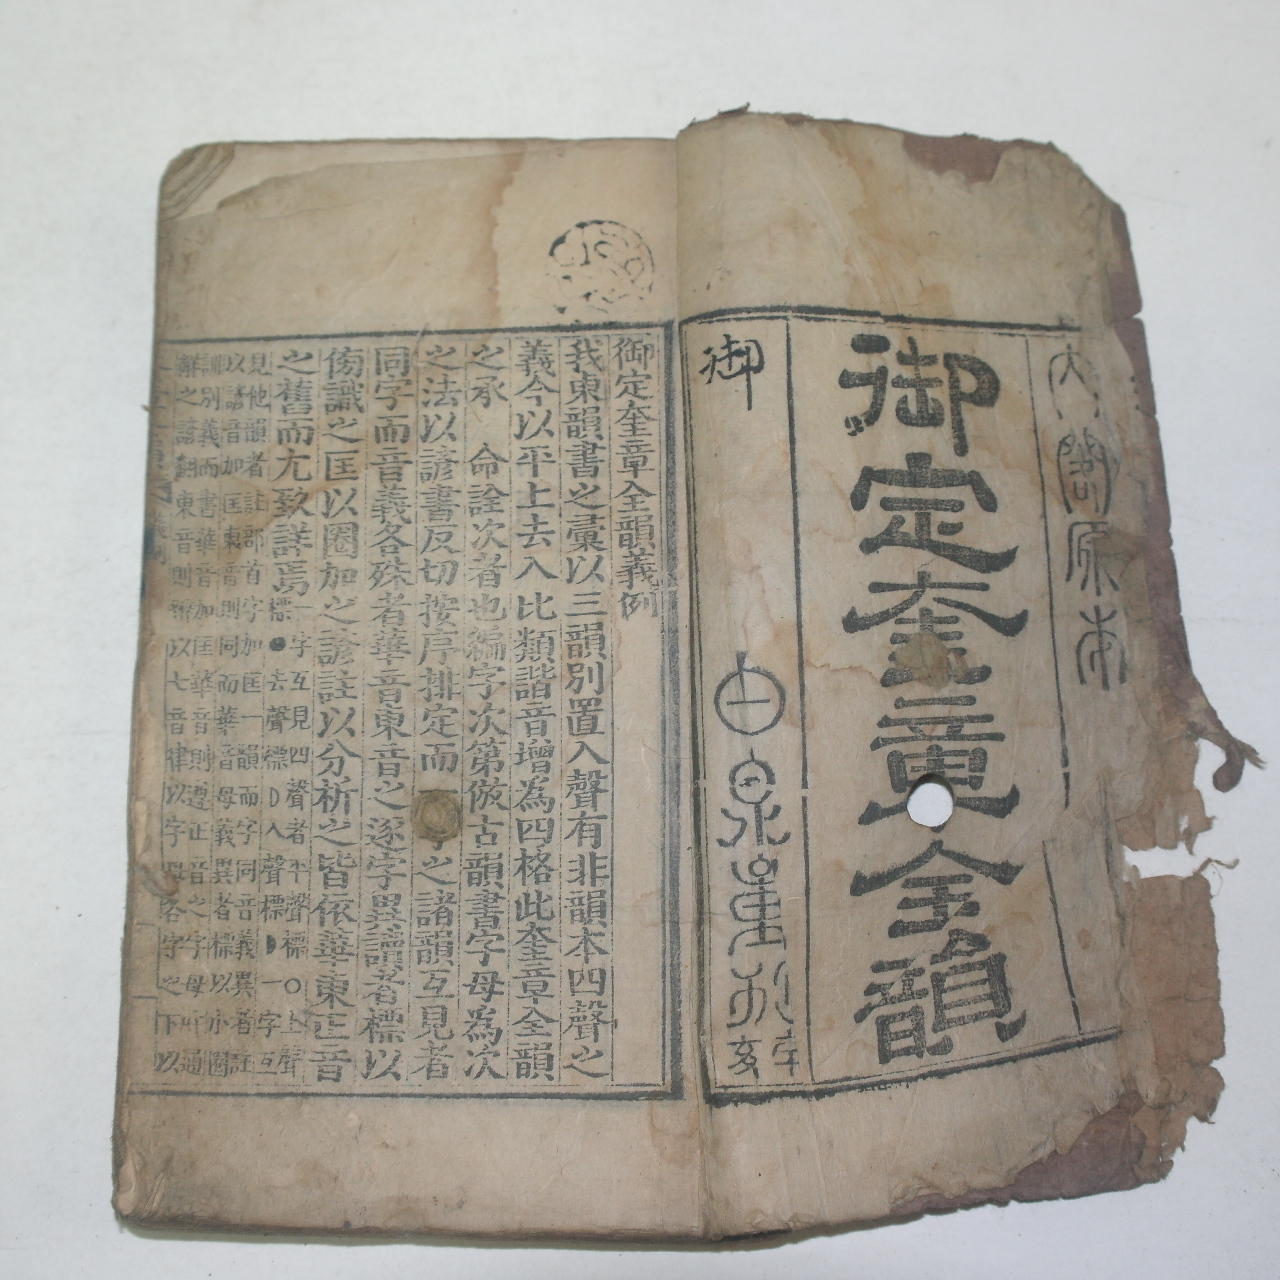 內閣原本
御定奎章全韻
御定奎章全韻義例
我東韻書之彙以三韻別置入聲有非韻本四聲之
義今以平上去入比類諧音增為四格此奎章全韻
之承 命詮次者也編字次第倣古韻書字母為次
之法以諺書反切按序排定而一字之諸韻互見者
同字而音義各殊者華音東音之逐字異讀者標以
傍識之匡以圈加之諺註以分析之皆依華東正音
之舊而尤致詳焉標一字互見四聲者平聲標○上聲
標●去聲標D入聲標◗一字互
見他韻者註部首字加匡一韻而字同音義異者註
以諺音加匡東音則同而華音母義異者標以小圈
訓別義而書華音加匡華音則遵正音之字母
解之諺翻東音則 以七音律以字母各字之下以